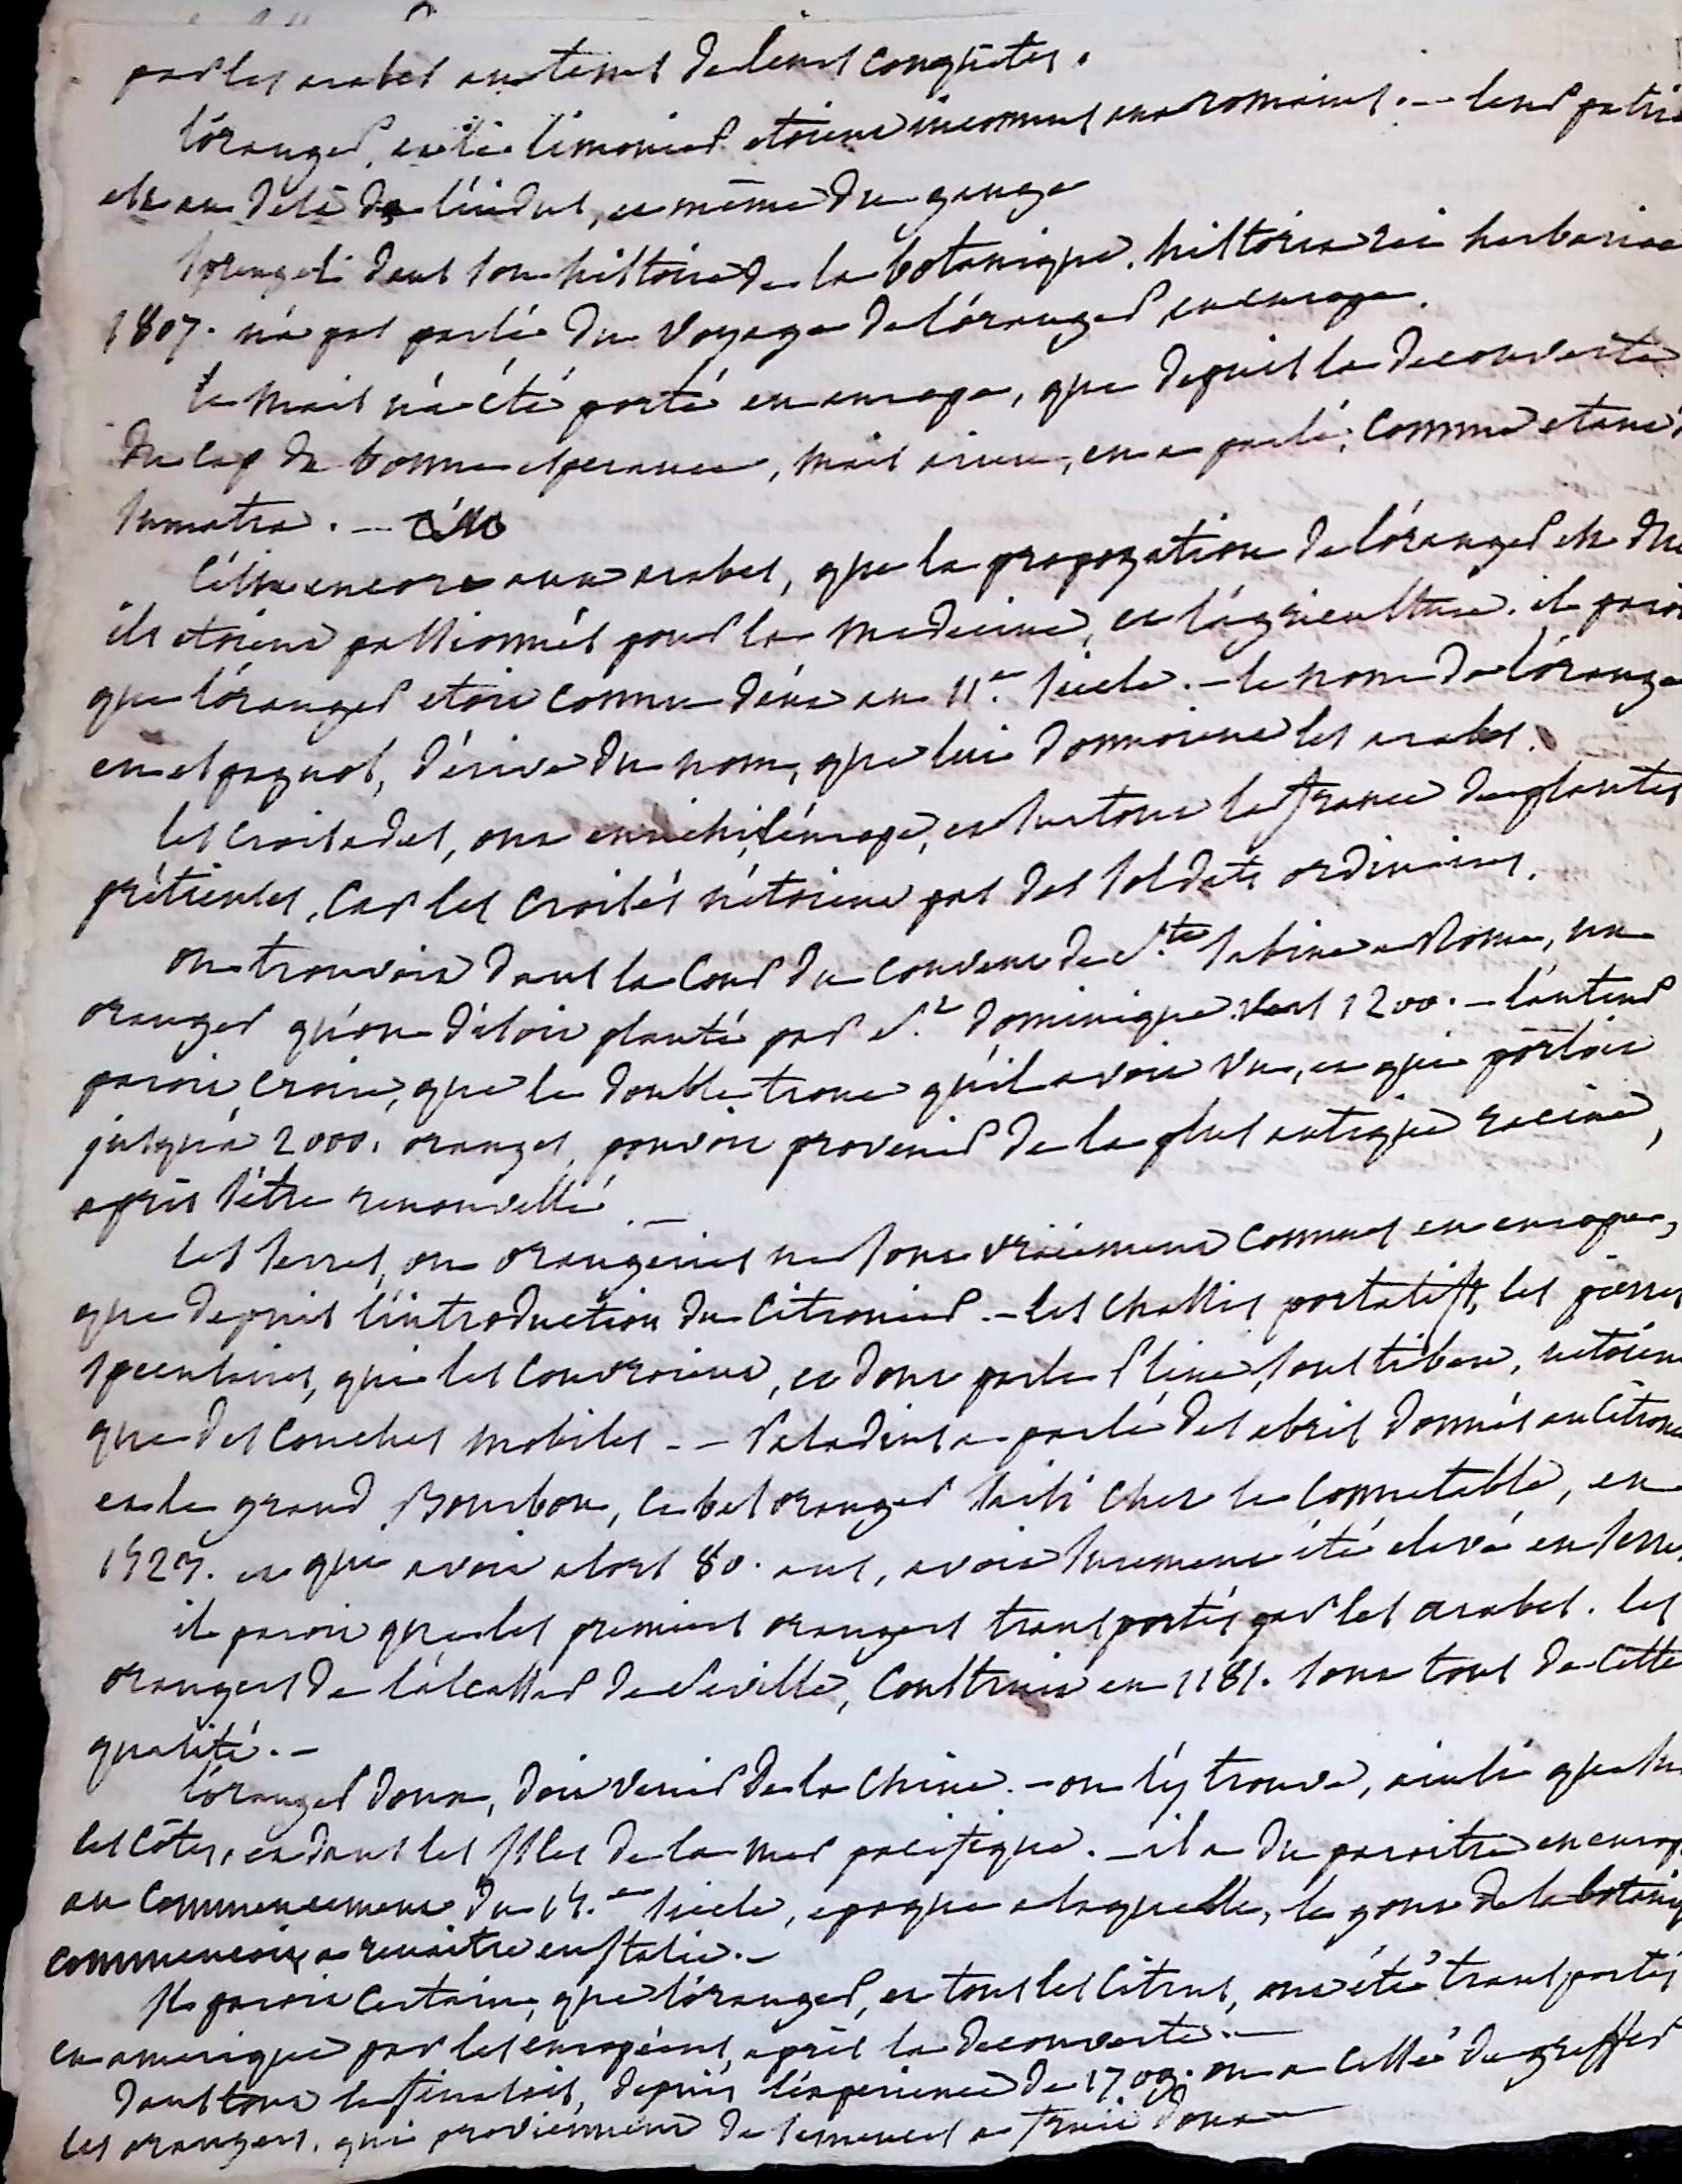 par les arabes au tems de leurs conquêtes.
l'oranger, et le limonier etoient inconnus aux romains. — leur patrie
est au delà de l'indus, et même du gange
Sprengel dans son histoire de la botanique. historia rei herbariae
1807. n'a pas parlé du voyage de l'oranger en europe.
le maïs n'a été porté en europe, que depuis la decouverte
du cap de bonne esperance, mais, en a parlé, comme etant
Sumatra. —
C'est encore aux arabes, que la propagation de l'oranger est due
ils etoient passionnés pour la medecine, et l'agriculture. il paroit
que l'oranger etoit connu d'eux au 11.e siecle. — le nom de l'orange
en espagnol, dérive du nom, que lui donnoient les arabes.
les croisades, ont enrichi l'europe, et surtout la france de plantes
prétieuses, car les croisés n'étoient pas des soldats ordinaires.
on trouvoit dans la cour du couvent de S.te Sabine a Rome, un
oranger qu'on disoit planté par S.t dominique vers 1200. — l'auteur
paroit croire, que le double tronc qu'il avoit vu, et qui portoit
jusqu'à 2000. oranges, pouvoit provenir de la plus antique racine,
après s'être renouvellé. —
les serres, ou orangeries ne sont vraiement connues en europe,
que depuis l'introduction du citronier. — les chassis portatifs, les pierres
speculaires, qui les couvroient, et dont parle Pline, sous tibere, n'étoient
que des couches mobiles. — Paladius a parlé des abris donnés au citronier
et le grand Bourbon, ce bel oranger saisi chez le connetable, en
1523. et qui avoit alors 80. ans, avoit surement été elevé en serre.
il paroit que les premiers orangers transportés par les arabes. les
orangers de l'alcassar de Seville, construit en 1181. sont tous de cette
qualité. —
l'oranger doux, doit venir de la chine. — on l'y trouve, ainsi que sur
les côtes, et dans les isles de la mer pacifique. — il a du paroitre en europe
au commencement du 15.e siecle, epoque a laquelle, le gout de la botanique
commencoit a renaitre en Italie. —
Il paroit certain, que l'oranger, et tous les citrus, ont été transportés
en amerique par les européens, après la decouverte. —
dans tout le finalois, depuis l'experience de 1709. on a cessé de greffer
les orangers, qui proviennent de semences a fruit doux —